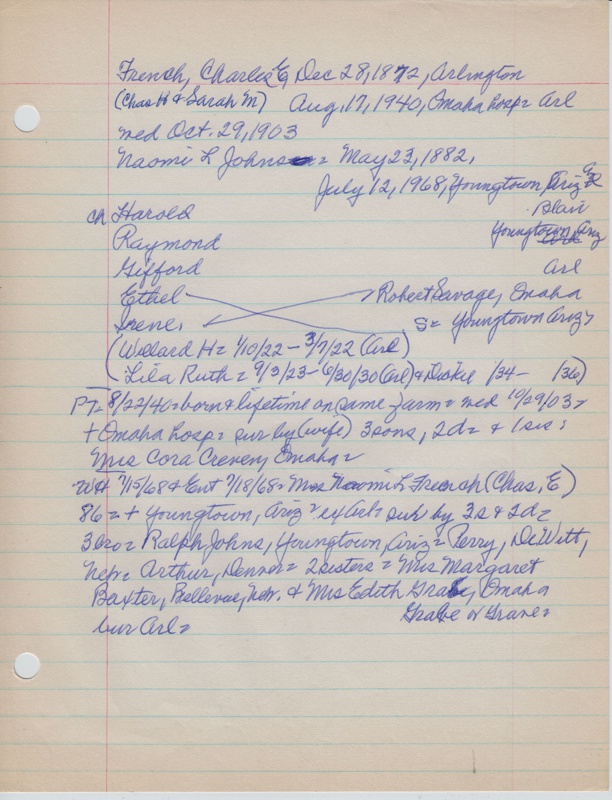 French, Charles E, Dec 28, 1872, Arlington
(Chas H & Sarah M) Aug. 17, 1940, Omaha hosp = Arl
wed Oct. 29, 1903
Naomi L Johns = May 23, 1882,
July 12, 1968, Youngtown, Ariz
ch Harold Blair
Raymond Youngtown Ariz
Gifford Arl
Ethel Robert Savage, Omaha
Irene, S = Youngtown Ariz
(Willard H = 1/10/22 - 3/7/22 (Arl)
(Lila Ruth = 9/3/23 - 6/30/30 (Arl) & Dickie 1/34 - 1/36)
PT = 8/22/40 = born & lifetime on same farm = wed 10/29/03 =
+ Omaha hosp = sur by (wife) 3 sons, 2d = & 1 sis =
Mrs Cora Creven, Omaha =
WH 7/15/68 & Ent 7/18/68 = Mrs Naomi L French (Chas, E)
86 = + Youngtown, Ariz = ex Arl = sur by 3s & 2d =
3 bro = Ralph Johns, Youngtown, Ariz = Perry, DeWitt,
Nebr = Arthur, Denver = 2 sisters = Mrs Margaret
Baxter, Bellevue, Nebr. & Mrs Edith Grabe, Omaha
Grabe or Grave =
bur Arl =